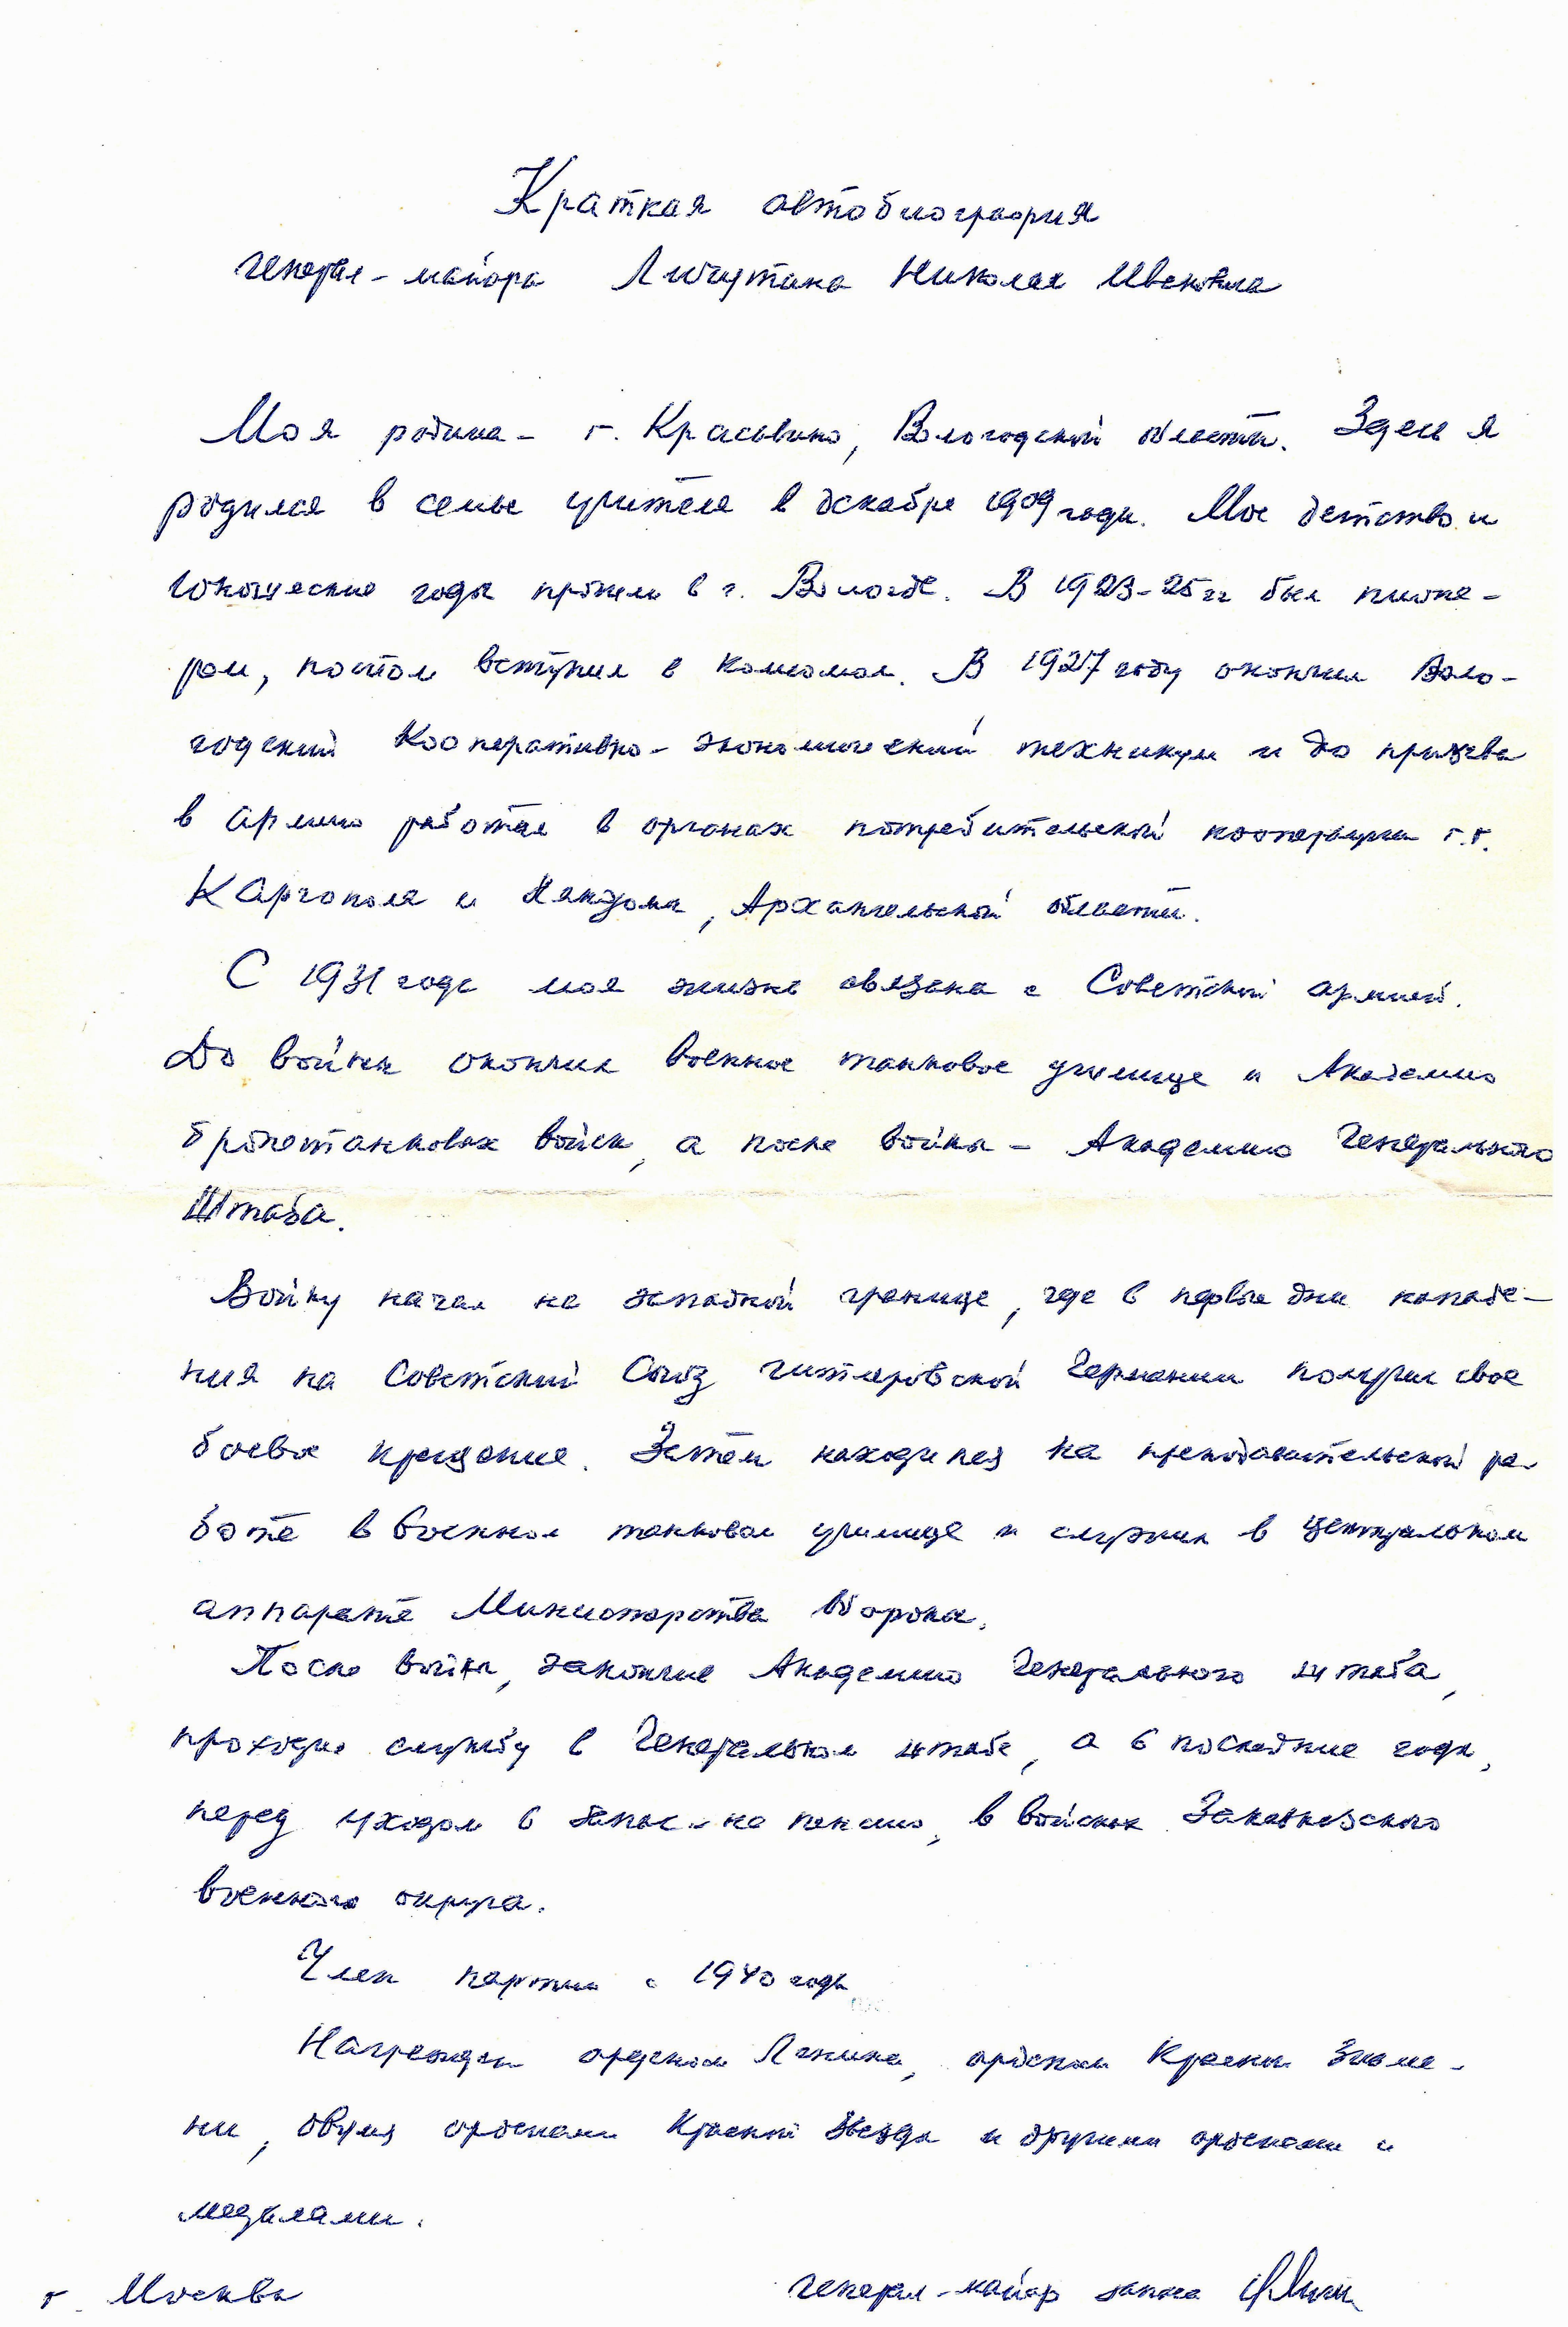 Краткая автобиография
генерал-майора Личутина Николая Ивановича
Моя родина - г. Красавино, Вологодской области. Здесь я
родился в семье учителя в декабре 1909 года. Мое детство и
юношеские годы прошли в г. Вологде. В 1923-25 гг был пионе-
ром, потом вступил в комсомол. В 1927 году окончил Воло-
годский Кооперативно-экономический техникум и до призыва
в армию работал в органах потребительской кооперации г.г.
Каргополя и Няндома, Архангельской области.
С 1931 года моя жизнь связана с Советской армией.
До войны окончил военное танковое училище и Академию
бронетанковых войск, а после войны - Академию Генерального
Штаба.
Войну начал на западной границе, где в первые дни нападе-
ния на Советский Союз гитлеровской Германии получил свое
боевое крещение. Затем находился на преподавательской ра-
боте в военном танковом училище и служил в центральном
аппарате Министерства Обороны.
После войны, закончив Академию Генерального штаба,
проходил службу в Генеральном штабе, а в последние годы,
перед уходом в запас на пенсию, в войсках Закавказского
военного округа.
Член партии с 1940 года
Награжден орденом Ленина, орденом Красного Знаме-
ни, двумя орденами Красной Звезды и другими орденами и
медалями.
г. Москва генерал-майор запаса